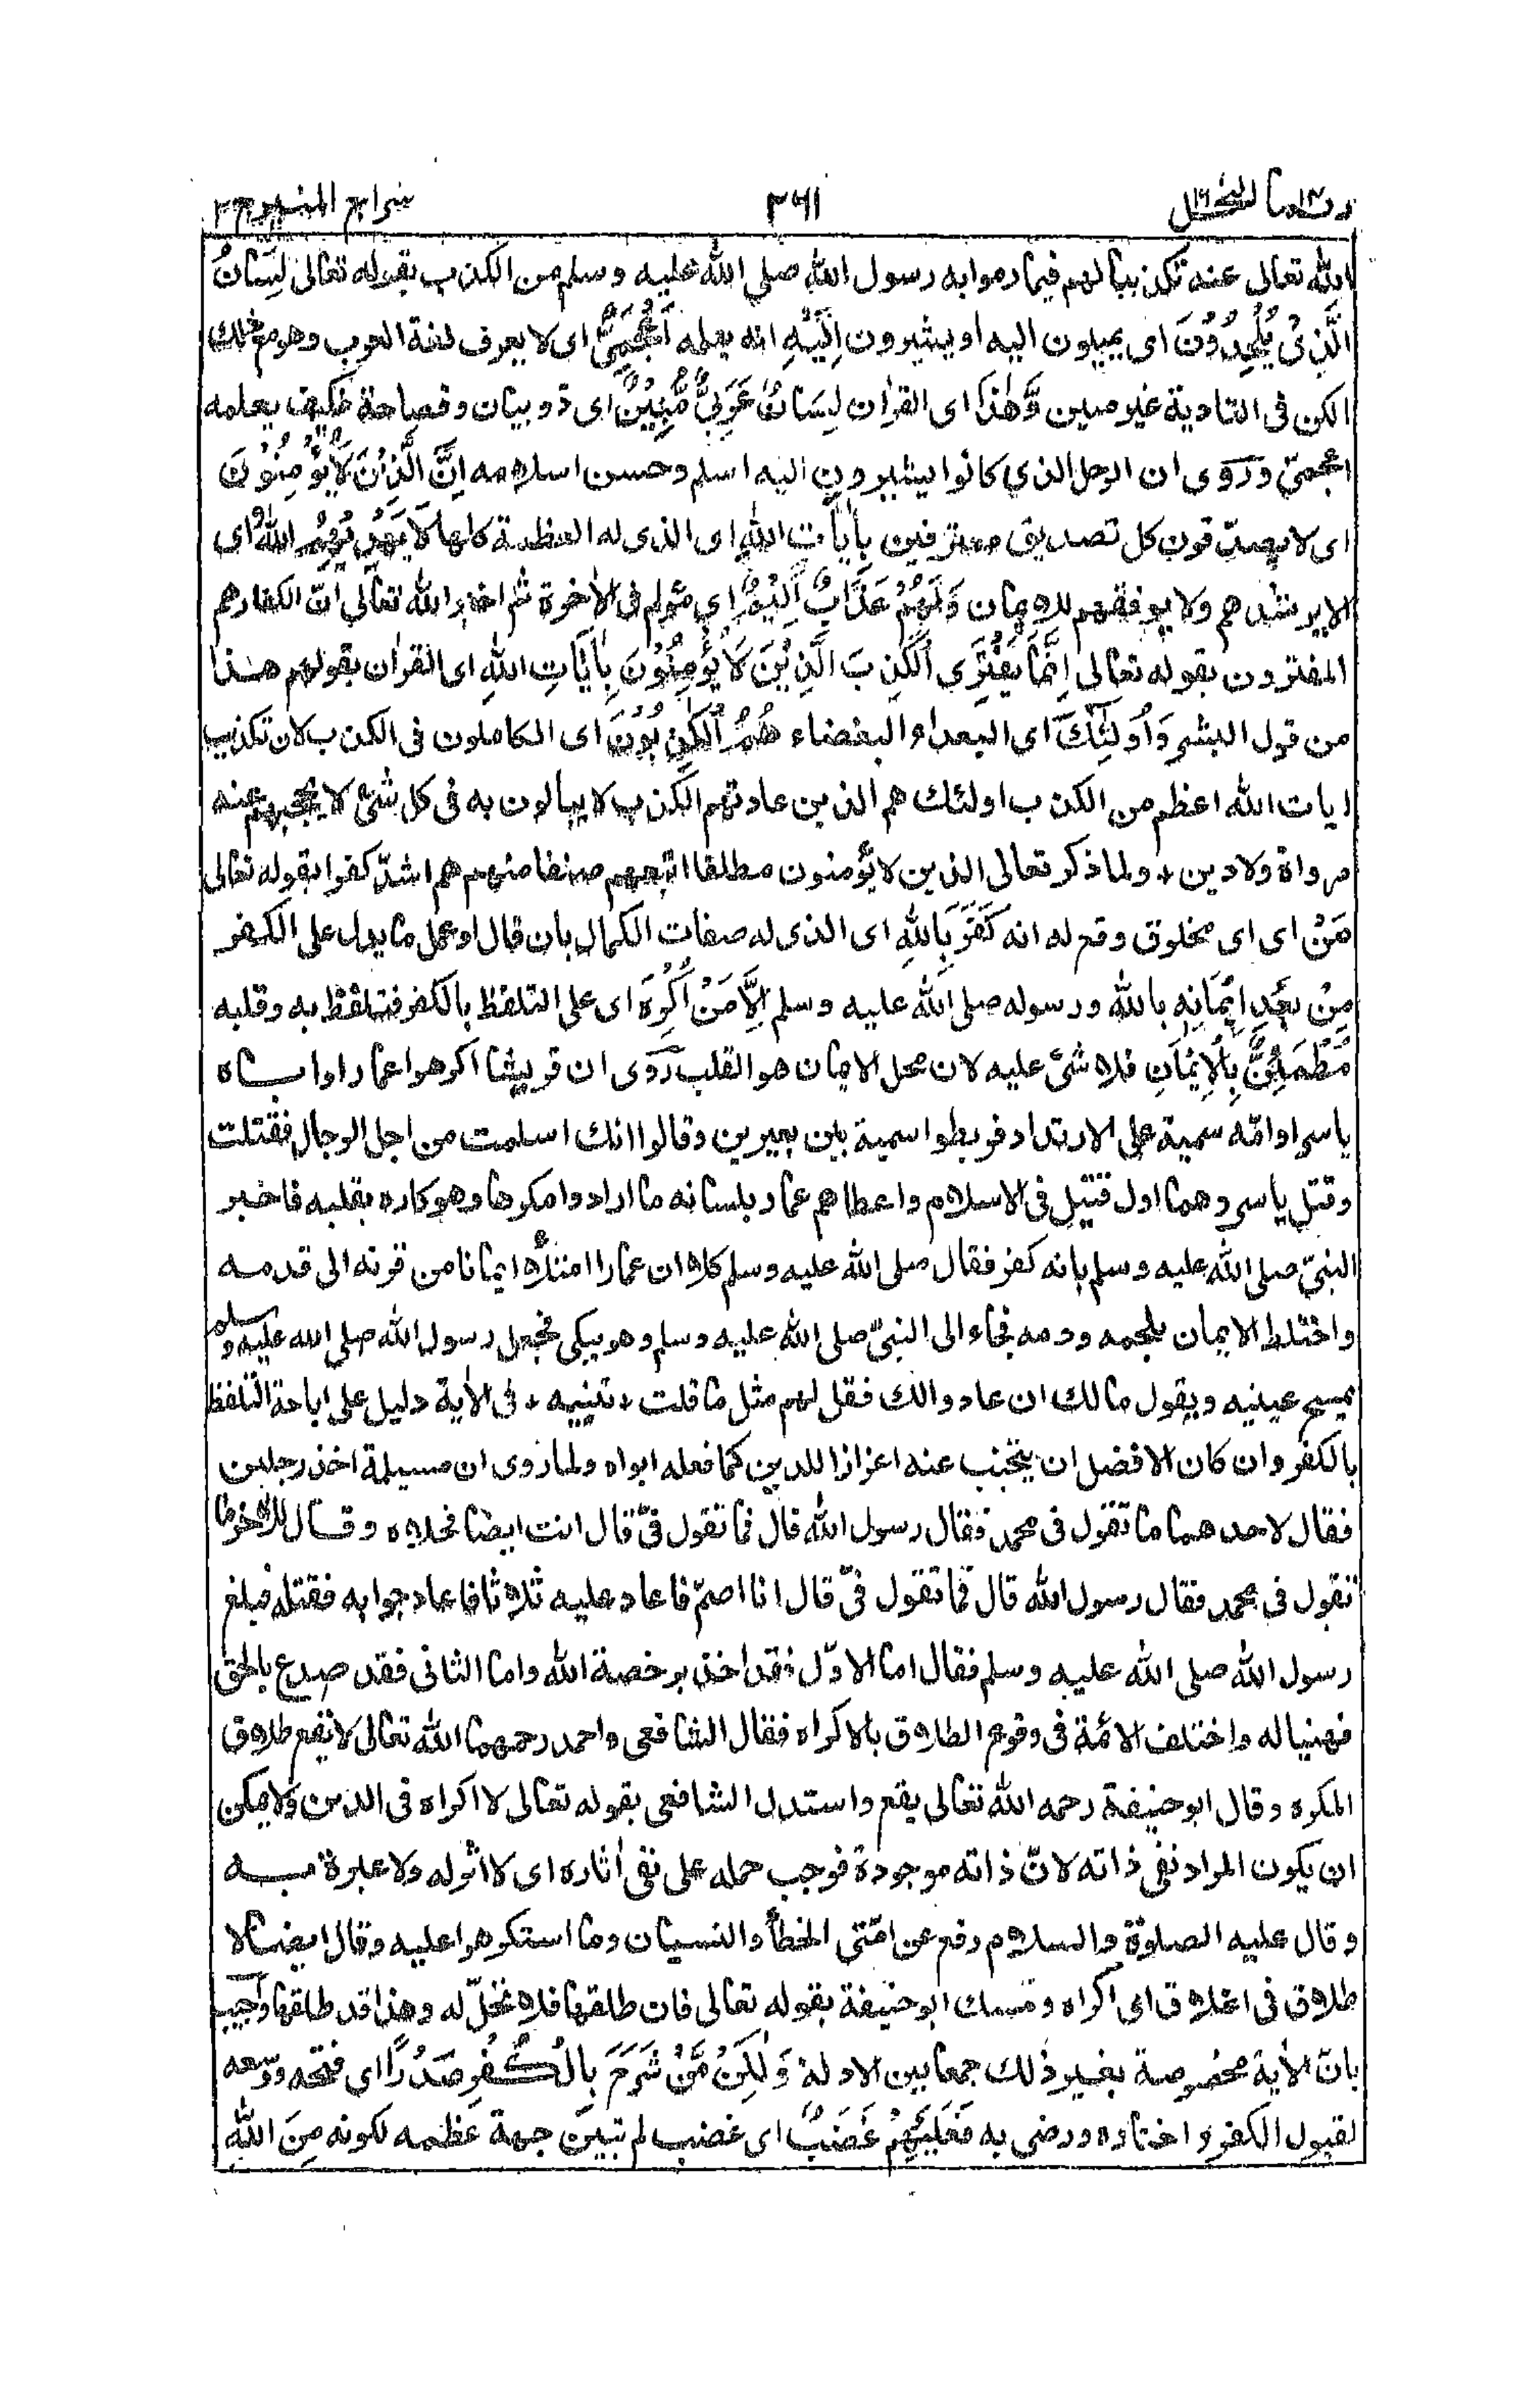 ربما النحل ٢٦١ سراج المنير ج ٢
الله تعالى عنه تكذيبا لهم فيما رموا به رسول الله صلى الله عليه وسلم من الكذب بقوله تعالى لِسَانُ
الَّذِىْ يُلْحِدُوْنَ اى يميلون اليه او يشيرون اِلَيْهِ انه يعلمه اَعْجَمِىٌّ اى لا يعرف لغة العرب وهو مع ذلك
الكن فى التادية غير مبين وَّهٰذَا اى القراٰن لِسَانٌ عَرَبِىٌّ مُّبِيْنٌ اى ذو بيان وفصاحة فكيف يعلمه
اعجمىّ ورَوى ان الرجل الذي كانوا يشيرون اليه اسلم وحسن اسلامه اِنَّ الَّذِيْنَ لَا يُؤْمِنُوْنَ
اى لا يصدّقون كل تصديق معترفين بِاٰيٰتِ اللهِ اى الذى له العظمة كلها لَا يَهْدِيْهِمُ اللهُ اى
لا يرشدهم ولا يوفقهم للايمان وَلَهُمْ عَذَابٌ اَلِيْمٌ اى مؤلم فى الاٰخرة ثم اخبر الله تعالى انّ الكفار هم
المفترون بقوله تعالى اِنَّمَا يَفْتَرِى الْكَذِبَ الَّذِيْنَ لَا يُؤْمِنُوْنَ بِاٰيَاتِ اللهِ اى القراٰن بقولهم هذا
من قول البشر وَاُولٰٓئِكَ اى البعداء البغضاء هُمُ الْكٰذِبُوْنَ اى الكاملون فى الكذب لان تكذيب
ايات الله اعظم من الكذب اولئك هم الذين عادتهم الكذب لا يبالون به فى كل شئ لا يحجبهم عنه
مرواة ولا دين + ولما ذكر تعالى الذين لا يؤمنون مطلقا اتبعهم صنفا منهم هم اشدّ كفرا بقوله تعالى
مَنْ اى اى مخلوق وقع له انه كَفَرَ بِاللهِ اى الذى له صفات الكمال بان قال او عمل ما يدل على الكفر
مِنْ بَعْدِ اِيْمَانِهِ بالله ورسوله صلى الله عليه وسلم اِلَّا مَنْ اُكْرِهَ اى على التلفظ بالكفر فتلفظ به وقلبه
مُطْمَئِنٌّ بِالْاِيْمَانِ فلا شئ عليه لان محل الايمان هو القلب رَوى ان قريشا اكرهوا عمارا وابـــاه
ياسرا وامّه سمية على الارتداد فربطوا سمية بين بعيرين وقالوا انك اسلمت من اجل الرجال فقتلت
وقتل ياسر وهما اول قتيل فى الاسلام واعطاهم عمار بلسانه ما ارادوا مكرها وهو كاره بقلبه فاخبر
النبىّ صلى الله عليه وسلم بانه كفر فقال صلى الله عليه وسلم كلا ان عمارا امتلأ ايمانا من قرنه الى قدمه
واختلط الايمان بلحمه ودمه فجاء الى النبىّ صلى الله عليه وسلم وهو يبكى فجعل رسول الله صلى الله عليه وسلم
يمسح عينيه ويقول مالك ان عادوا لك فقل لهم مثل ما قلت + تنبيه + فى الاٰية دليل على اباحة التلفظ
بالكفر وان كان الافضل ان يتجنب عنه اعزازا للدين كما فعله ابواه ولما روى ان مسيلمة اخذ رجلين
فقال لاحدهما ما تقول فى محمد فقال رسول الله قال فما تقول فىّ قال انت ايضا فخلاه وقال للاٰخر ما
تقول فى محمد فقال رسول الله قال فما تقول فىّ قال انا اصمّ فاعاد عليه ثلاثا فاعاد جوابه فقتله فبلغ
رسول الله صلى الله عليه وسلم فقال اما الاوّل فقد اخذ برخصة الله واما الثانى فقد صدع بالحق
فهنيا له واختلف الائمة فى وقوع الطلاق بالاكراه فقال الشافعى واحمد رحمهما الله تعالى لا يقع طلاق
المكره وقال ابو حنيفة رحمه الله تعالى يقع واستدل الشافعى بقوله تعالى لا اكراه فى الدين ولا يمكن
ان يكون المراد نفى ذاته لانّ ذاته موجودة فوجب حمله على نفى اٰثاره اى لا اثر له ولا عبرة بـــه
وقال عليه الصلوة والسلام رفع عن امّتى الخطأ والنسيان وما استكرهوا عليه وقال ايضا لا
طلاق فى اغلاق اى اكراه وتمسك ابو حنيفة بقوله تعالى فان طلقها فلا تحلّ له وهذا قد طلقها واجيب
بانّ الاٰية مخصوصة بغير ذلك جمعا بين الادلة وَلٰكِنْ مَّنْ شَرَحَ بِالْكُفْرِ صَدْرًا اى فتحه ووسّعه
لقبول الكفر واختاره ورضى به فَعَلَيْهِمْ غَضَبٌ اى غضب لم تبين جهة عظمه لكونه مِنَ اللهِ